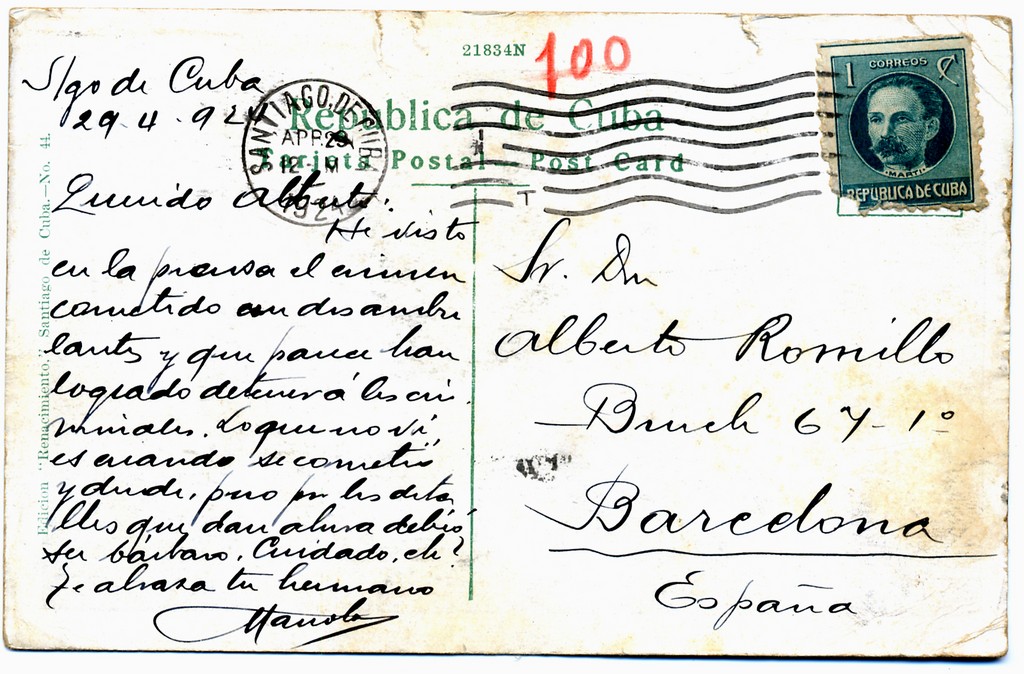 21834N
100
República de Cuba
Tarjeta Postal - Post Card
SANTIAGO, DE CUBA
APR 29
12 M
192
T
1 CORREOS C
MARTI
REPUBLICA DE CUBA
Edicion "Renacimiento," Santiago de Cuba.—No. 44.
S/go de Cuba
29-4-924
Querido Alberto:
He visto
en la prensa el crimen
cometido en dos ambu
lantes y que parece han
logrado detener á los cri-
minales. Lo que no vi,
es cuando se cometió
y donde, pero por los deta
lles que dan ahora debió
ser bárbaro. Cuidado, eh?
Te abraza tu hermano
Manolo
Sr. Dn
Alberto Romillo
Bruch 67-1º
Barcelona
España